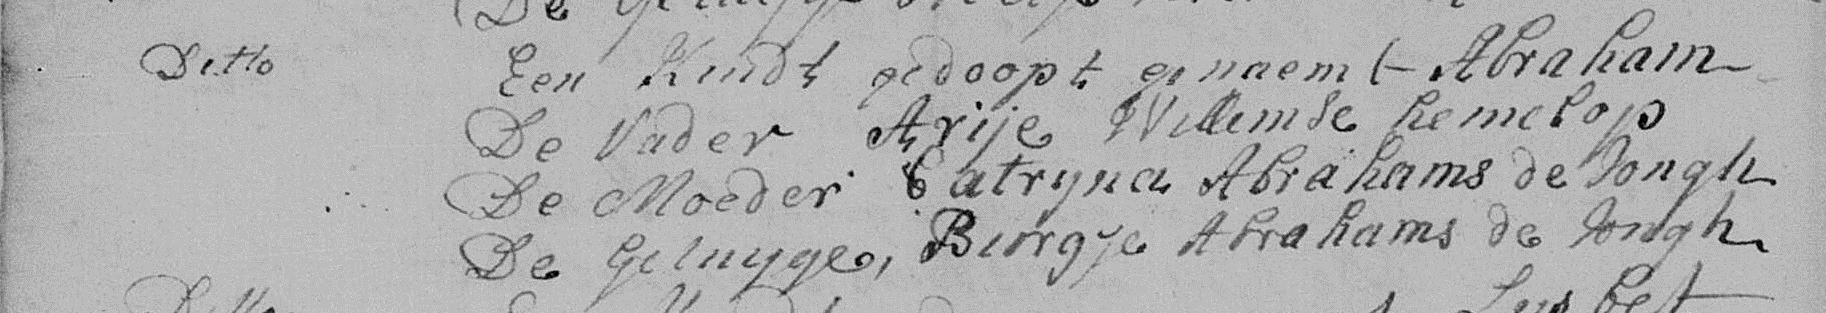 De Getuyge
Ditto Een Kindt gedoopt genaemt Abraham
De Vader Arije Willemse hemelop
De Moeder Catryna Abrahams de Jongh
De Getuyge, Burgje Abrahams de Jongh
Ditto Lysbet